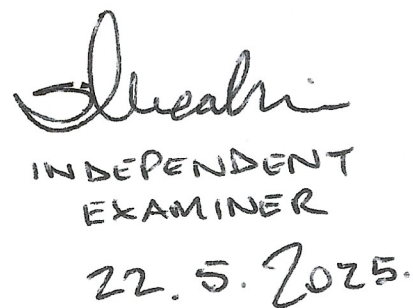 INDEPENDENT
EXAMINER
22.5.2025.